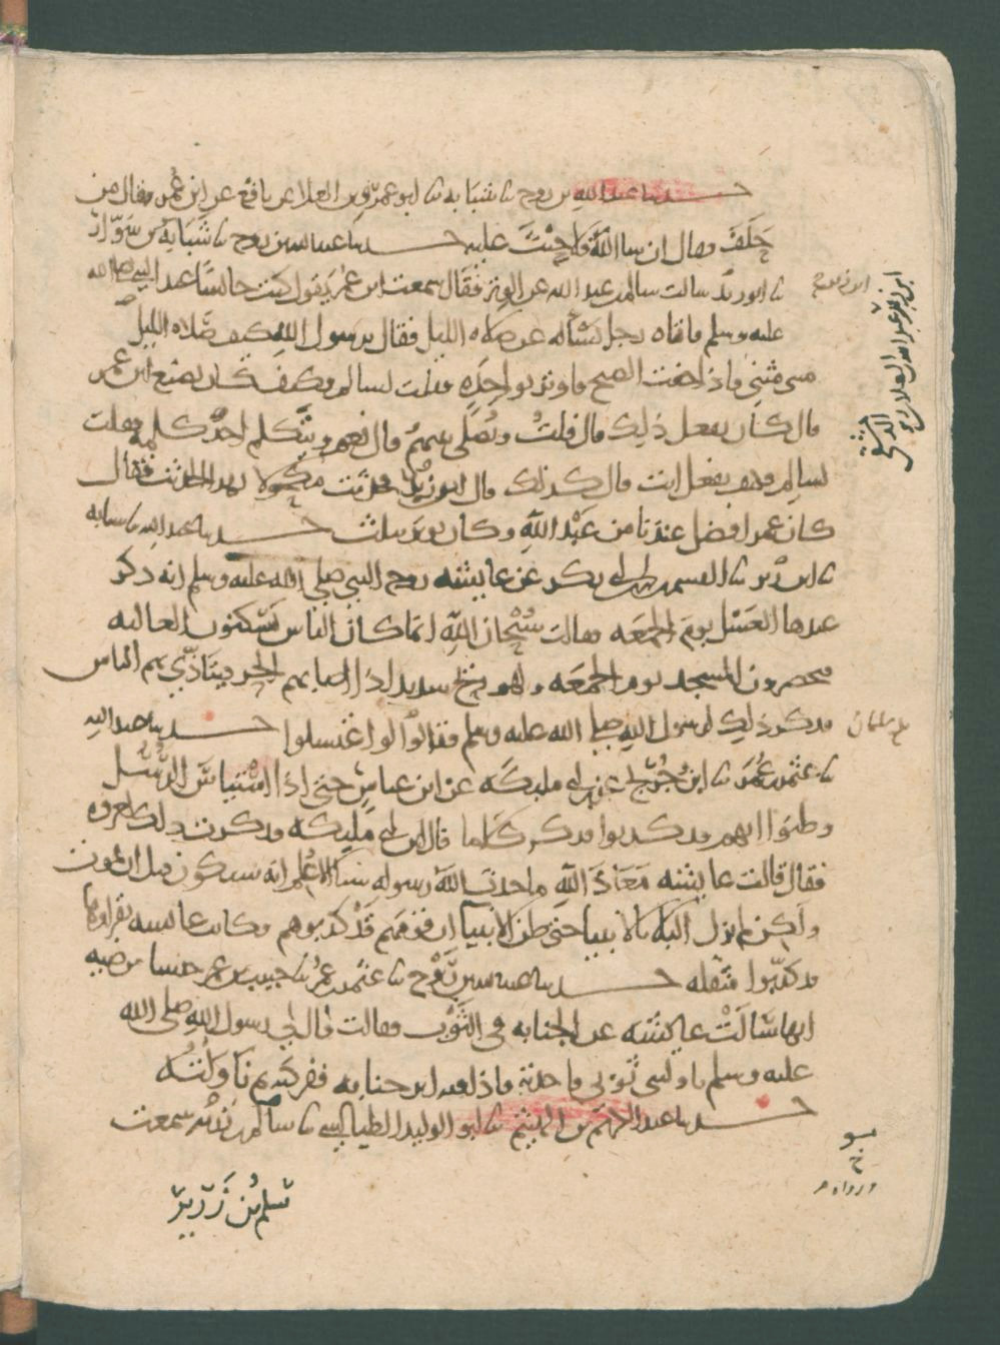 حدثنا عبد الله بن روح نا شبابة نا ابو عمرو بن العلا عن نافع عن ابن عمر فقال من
حلف وقال ان شا الله فلا حنث عليه حدثنا عبد الله بن روح نا شبابة بن سوار
نا ابو زيد سالت سالم بن عبد الله عن الوتر فقال سمعت ابن عمر يقول كنت جالسا عند النبي صلى الله
عليه وسلم فاتاه رجل يساله عن صلاة الليل فقال يرسول الله كيف صلاة الليل
مثنى مثنى فاذا خفت الصبح فاوتر بواحدة فقلت لسالم وكيف كان يصنع ابن عمر
قال كان يفعل ذلك قال قلت وتصلى بينهم قال نعم ويتكلم احد كلمة فقلت
لسالم وهو يفعل انت قال كذلك قال ابو زيد فحدثت مكحولا بهذا الحديث فقال
كان عمر افضل عندنا من عبد الله وكان يوتر بثلث حدثنا عبد الله نا شبابة
نا ابن زبر نا القسم بن ابي بكر عن عايشة زوج النبي صلى الله عليه وسلم انه ذكر
عندها الغسل يوم الجمعة فقالت سبحان الله انما كان الناس يسكنون العالية
فيحضرون المسجد يوم الجمعة ولهم ريح شديد اذا اصابهم الحر فيتاذى بهم الناس
فذكر ذلك لرسول الله صلى الله عليه وسلم فقال لو اغتسلوا حدثنا عبد الله
نا عثمن بن عمر نا ابن جريج عن ابن ابي مليكة عن ابن عباس حتى اذا استياس الرسل
وظنوا انهم قد كذبوا قد كر كلما قال ابن ابي مليكة فذكرت ذلك لعروة
فقال قالت عايشة معاذ الله ما حدث الله رسوله شيا الا علم انه سيكون قبل ان يموت
ولكن لم يزل البلا بالانبيا حتى ظن الانبيا ان قومهم قد كذبوهم وكانت عايشة تقراوها
قد كذبوا مثقلة حدثنا عبد الله بن روح نا عثمن بن عمر نا حبيب بن
انها سالت عايشة عن الجنابة في الثوب فقالت قال لي رسول الله صلى الله
عليه وسلم ناوليني ثوبي فاخذته فاذا فيه اثر جنابة ففركته ثم ناولته
حدثنا عبد الرحمن بن الهيثم نا ابو الوليد الطيالسي نا سالم بن زرير سمعت
سلم بن زرير
ابن زبر عبد الله بن العلا بن زبر
الدمشقي